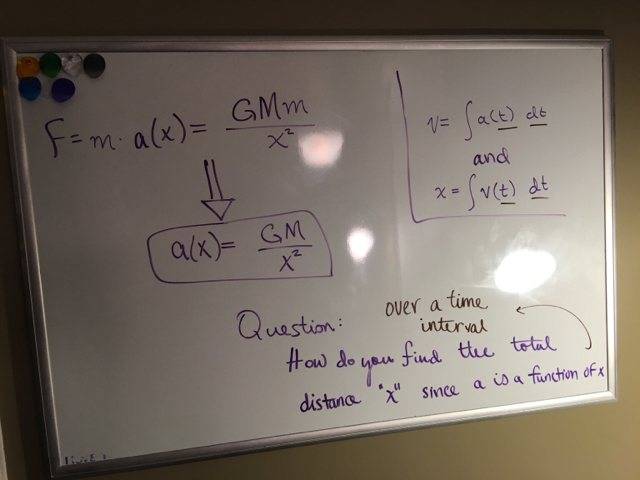 F = m · a(x) = GMm / x²
⇓
a(x) = GM / x²
v = ∫ a(t) dt
and
x = ∫ v(t) dt
Question:
over a time
interval
How do you find the total
distance "x" since a is a function of x